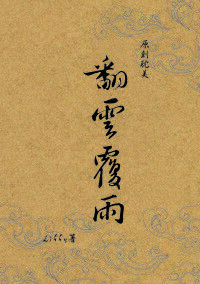 原創耽美
翻雲覆雨
著